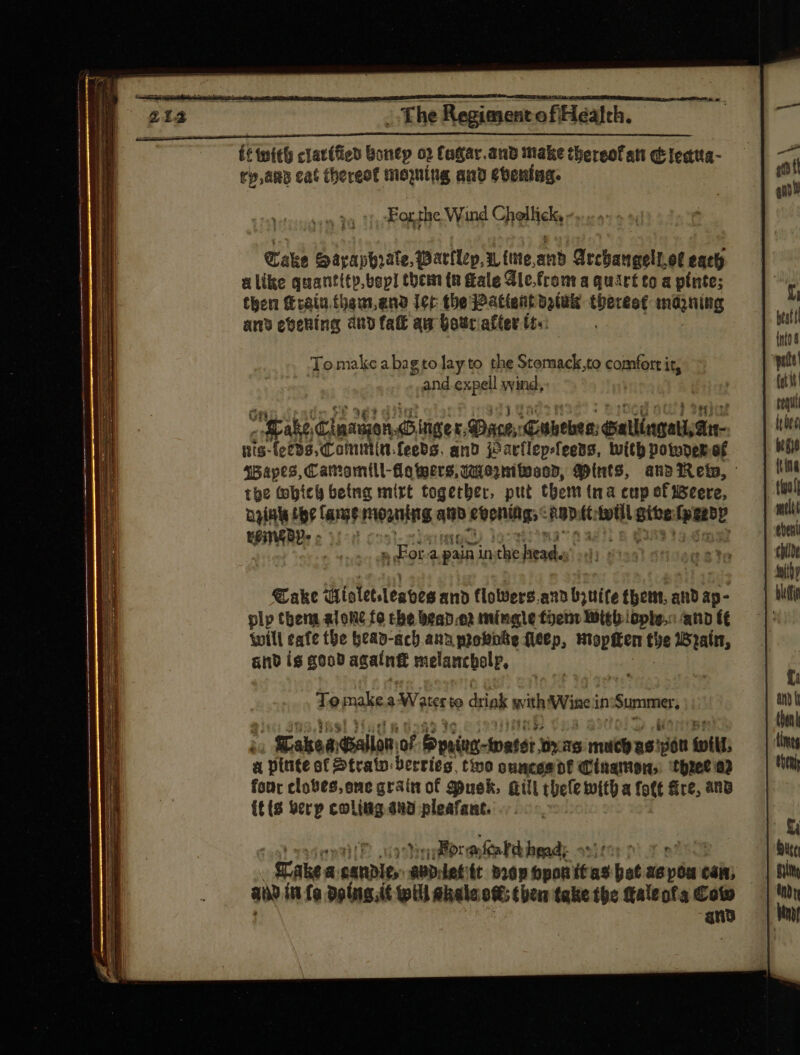 212 The Regiment of Health.
it with clarified honey or sugar. and make thereof an Electua-
ry, and eat thereof morning and evening.
For the Wind Chollick,
Take Saxaphrale, Parsley, Lime, and Archangell, of each
a like quantity, boyl them in stale Ale, from a quart to a pinte;
then strain them, and let the Patient drink thereof morning
and evening and fast an hour after it.
To make a bag to lay to the Stomack, to comfort it,
and expell wind,
Take, Cinamon, Ginger, Mace, Cubebes, Gallingall, An-
nis-seeds, Commin-seeds, and Parsley-seeds, with powder of
Bayes, Camomill-flowers, wormwood, Mints, and Rew,
the which being mixt together, put them in a cup of Beere,
drink the same morning and evening, and it will give speedy
remedy.
For a pain in the head.
Take Violet-leaves and flowers and bruise them, and ap-
ply them alone to the head, or mingle them with oyle, and it
will ease the head-ach and provoke sleep, moysten the Brain,
and is good against melancholy.
To make a Water to drink with Wine in Summer.
Take a Gallon of Spring-water, or as much as you will,
a pinte of Straw-berries, two ounces of Cinamon, three or
four cloves, one grain of Musk, still these with a soft fire, and
it is very cooling and pleasant.
For a scal'd head;
Take a candle, and let it drop upon it as hot as you can,
and in so doing, it will skale off; then take the stale of a Cow
and